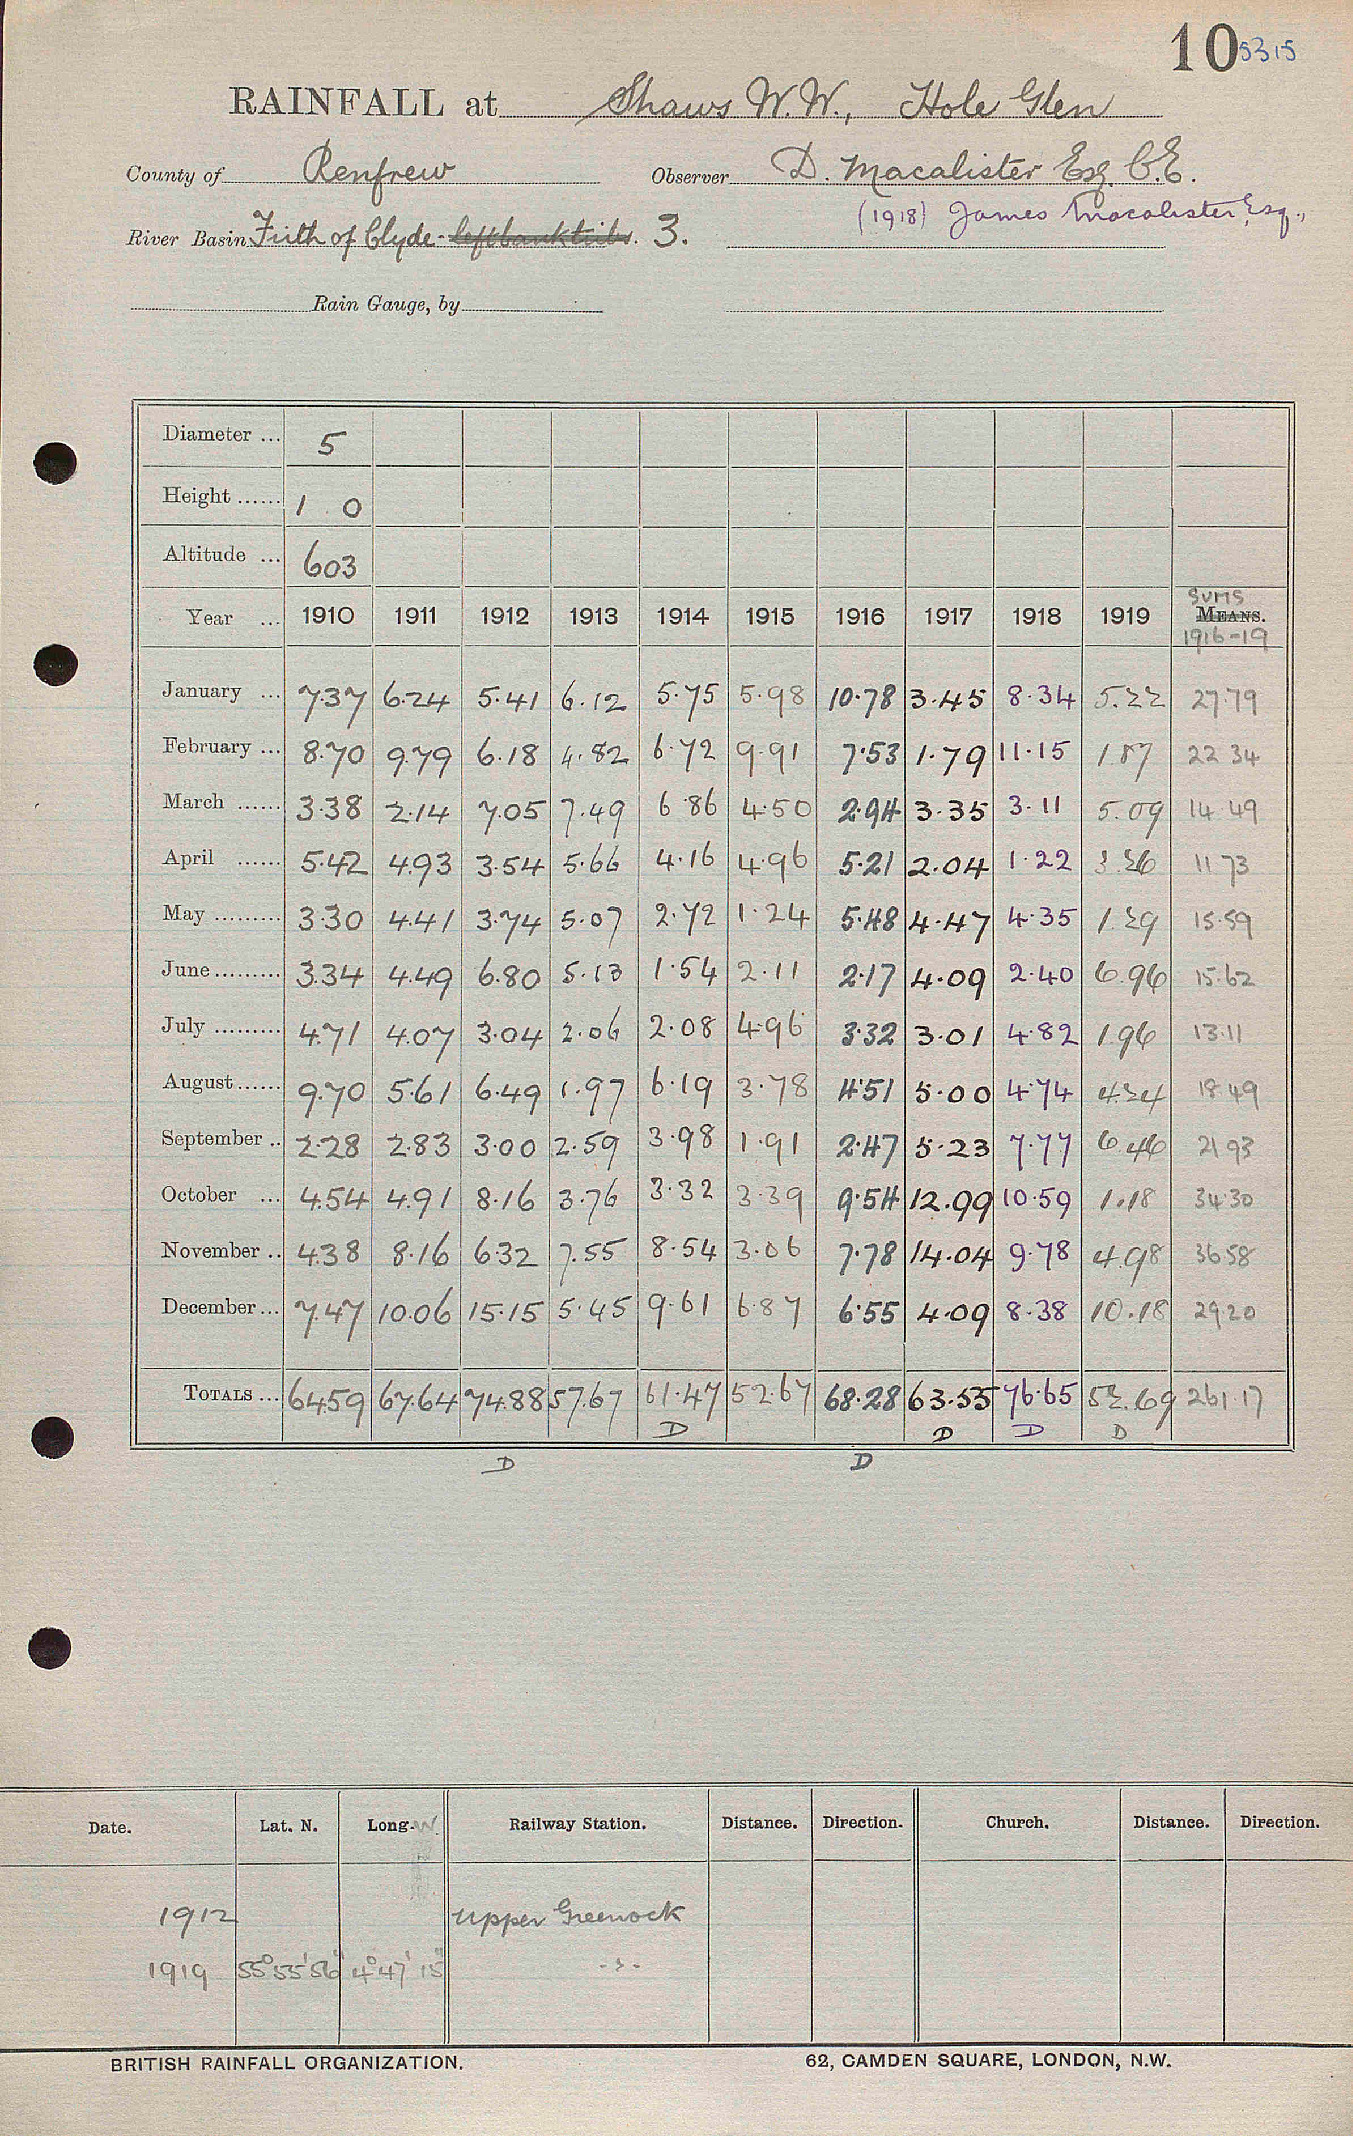 10 5315
RAINFALL at Shaws W.W., Hole Glen
County of Renfrew Observer D. Macalister Esq. C.E.
(1918) James Macalister Esq.,
River Basin Firth of Clyde - left bank tribs. 3.
Rain Gauge, by
Diameter ... 5
Height ...... 1 0
Altitude ... 603
SUMS
Year ... 1910 1911 1912 1913 1914 1915 1916 1917 1918 1919 MEANS.
1916-19
January ... 7.37 6.24 5.41 6.12 5.75 5.98 10.78 3.45 8.34 5.22 27.79
February ... 8.70 9.79 6.18 4.82 6.72 9.91 7.53 1.79 11.15 1.87 22 34
March ...... 3.38 2.14 7.05 7.49 6.86 4.50 2.94 3.35 3.11 5.09 14 49
April ...... 5.42 4.93 3.54 5.66 4.16 4.96 5.21 2.04 1.22 3.26 11 73
May ......... 3.30 4.41 3.74 5.07 2.72 1.24 5.48 4.47 4.35 1.29 15.59
June ......... 3.34 4.49 6.80 5.13 1.54 2.11 2.17 4.09 2.40 6.96 15.62
July ......... 4.71 4.07 3.04 2.06 2.08 4.96 3.32 3.01 4.82 1.96 13.11
August ...... 9.70 5.61 6.49 1.97 6.19 3.78 4.51 5.00 4.74 4.24 18.49
September .. 2.28 2.83 3.00 2.59 3.98 1.91 2.47 5.23 7.77 6.46 21 93
October ... 4.54 4.91 8.16 3.76 3.32 3.39 9.54 12.99 10.59 1.18 34.30
November .. 4.38 8.16 6.32 7.55 8.54 3.06 7.78 14.04 9.78 4.98 36.58
December ... 7.47 10.06 15.15 5.45 9.61 6.87 6.55 4.09 8.38 10.18 29.20
TOTALS ... 64.59 67.64 74.88 57.67 61.47 52.67 68.28 63.55 76.65 52.69 261.17
D D D D
D D
Date. Lat. N. Long. W. Railway Station. Distance. Direction. Church. Distance. Direction.
1912 Upper Greenock
1919 55° 55' 56" 4° 47' 15"
BRITISH RAINFALL ORGANIZATION. 62, CAMDEN SQUARE, LONDON, N.W.